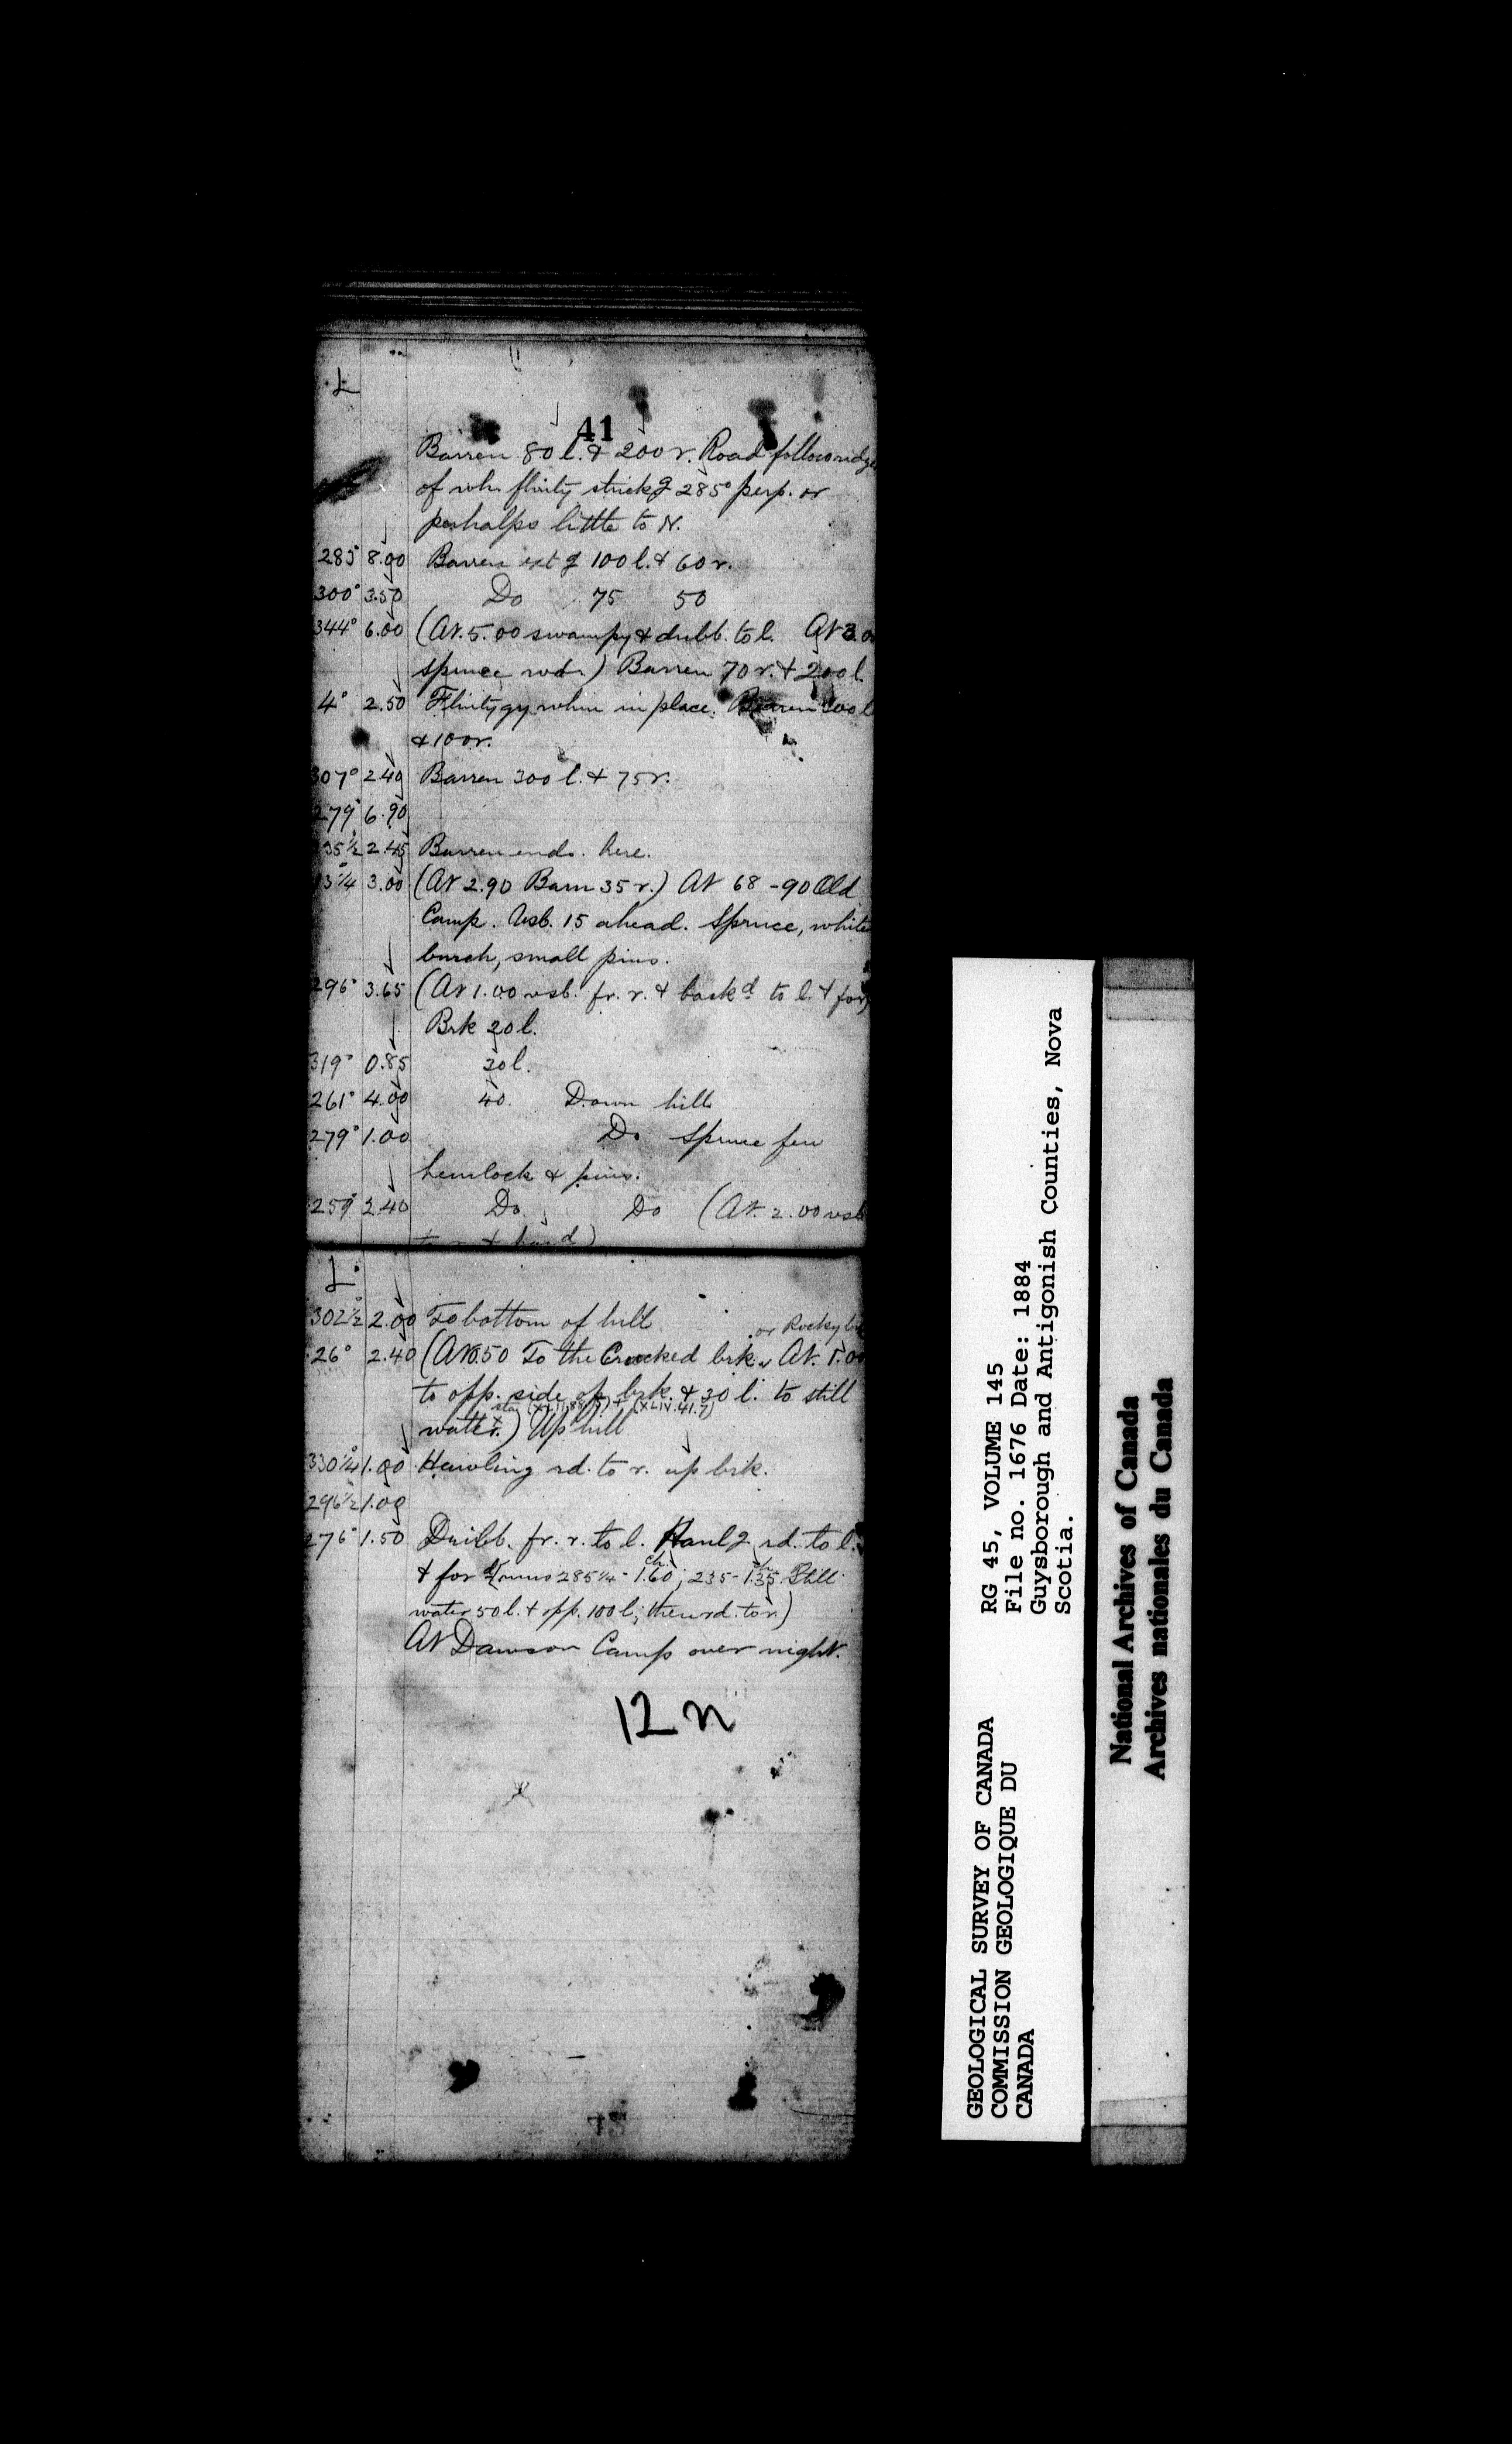 L
41
Barren 80 l. & 200 r. Road follows ridge
of wh. flinty strikg 285° perp. or
perhalps little to N.
285° 8.00 Barren extg 100 l. & 60 r.
300° 3.50 Do 75 50
344° 6.00 (At 5.00 swampy & dribb. to l. At 3.00
spruce wds.) Barren 70 r. & 200 l.
4° 2.50 Flinty gy whin in place. Barren 300 l
& 100 r.
307° 2.40 Barren 300 l. & 75 r.
279° 6.90
35½ 2.45 Barren ends. here.
13¼ 3.00 (At 2.90 Barn 35 r.) At 68 - 90 Old
Camp. 15 ahead. Spruce, white
burch, small pins.
296° 3.65 (At 1.00 vsb. fr. r. & backd to l. & for)
Brk 20 l.
319° 0.85 30 l.
261° 4.00 40. Down hill
279° 1.00 Do Spruce few
hemlock & pins.
259° 2.40 Do. Do (At. 2.00 vsb
L
302½° 2.00 To bottom of hill
or Rocky
26° 2.40 (At 0.50 To the Crooked brk. At. 1.00
to opp. side of brk. & 30 l. to still
(XLIV.41.7)
water.) Up hill
330¼° 1.00 Hawling rd. to r. up brk.
296½° 1.00
276° 1.50 Dribb. fr. r. to l. Haulg rd. to l.
& for 285¼ - 1.60 ch.; 235 - 1.35 ch. Still
water 50 l. & opp. 100 l; then rd. to r.)
At Dawson Camp over night.
12 n
GEOLOGICAL SURVEY OF CANADA
COMMISSION GEOLOGIQUE DU
CANADA
RG 45, VOLUME 145
File no. 1676 Date: 1884
Guysborough and Antigonish Counties, Nova
Scotia.
National Archives of Canada
Archives nationales du Canada